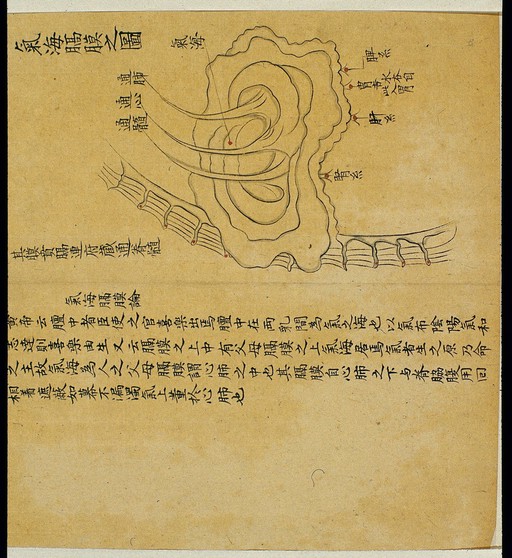 氣海膈膜之圖
氣海
脾系
肝系
腎系
通肺
通心
通髓
其膜貫膈連府蔵通脊髓
氣海膈膜論
黃帝云膻中者臣使之官喜樂出焉膻中在兩乳間為氣之海也以氣布陰陽氣和
志達則喜樂由生又云膈膜之上中有父母膈膜之上氣海居焉氣者生之原乃命
之主故氣海為人之父母膈膜謂心肺之中也其膈膜自心肺之下与脊脇腹周回
相着遮蔽如幕不漏濁氣上薰於心肺也